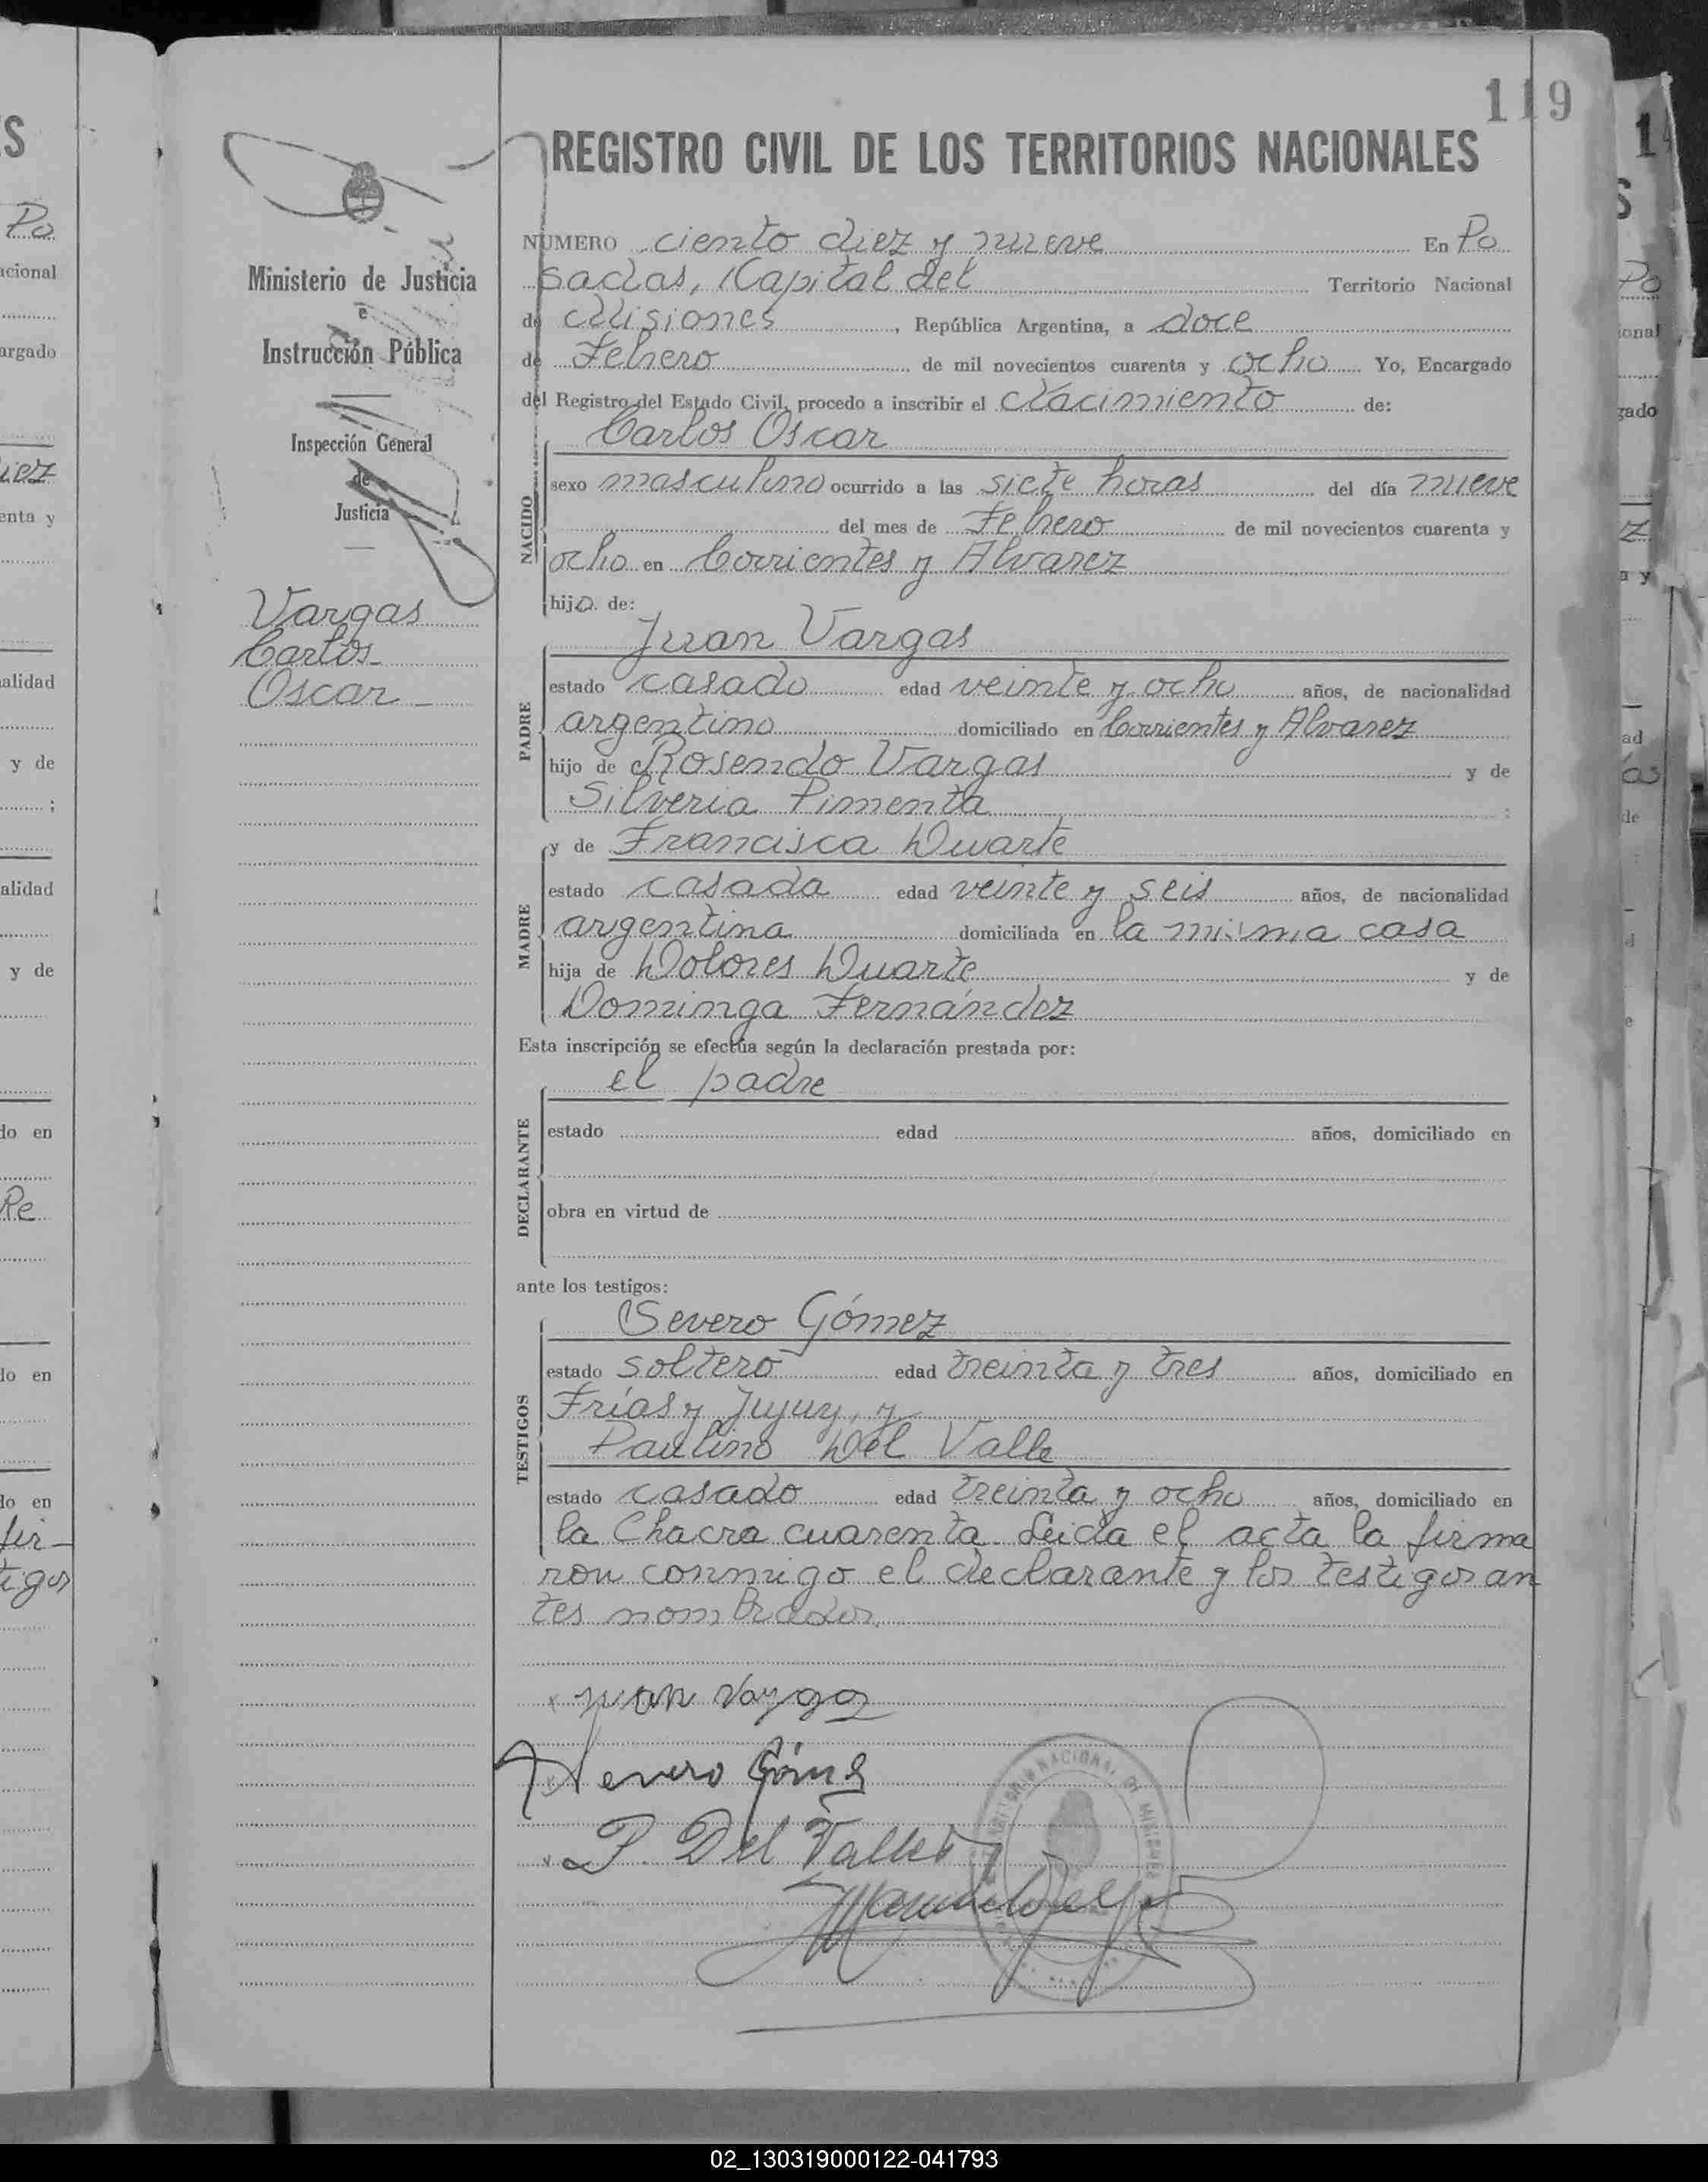 119
REGISTRO CIVIL DE LOS TERRITORIOS NACIONALES
Ministerio de Justicia
e
Instrucción Pública
Inspección General
de
Justicia
Vargas
Carlos
Oscar
NÚMERO ciento diez y nueve En Po
sadas, Capital del Territorio Nacional
de Misiones, República Argentina, a doce
de Febrero de mil novecientos cuarenta y ocho Yo, Encargado
del Registro del Estado Civil, procedo a inscribir el Nacimiento de:
NACIDO
Carlos Oscar
sexo masculino ocurrido a las siete horas del día nueve
del mes de Febrero de mil novecientos cuarenta y
ocho en Corrientes y Alvarez
hijo de:
PADRE
Juan Vargas
estado casado edad veinte y ocho años, de nacionalidad
argentino domiciliado en Corrientes y Alvarez
hijo de Rosendo Vargas y de
Silveria Pimenta ;
MADRE
y de Francisca Duarte
estado casada edad veinte y seis años, de nacionalidad
argentina domiciliada en la misma casa
hija de Dolores Duarte y de
Dominga Fernández
Esta inscripción se efectúa según la declaración prestada por:
DECLARANTE
el padre
estado edad años, domiciliado en
obra en virtud de
ante los testigos:
TESTIGOS
Severo Gómez
estado soltero edad treinta y tres años, domiciliado en
Frías y Jujuy, y
Paulino Del Valle
estado casado edad treinta y ocho años, domiciliado en
la Chacra cuarenta. Leida el acta la firma
ron conmigo el declarante y los testigos an
tes nombrados.
x Juan Vargas
x Severo Gómez
x P. Del Valle
02_130319000122-041793